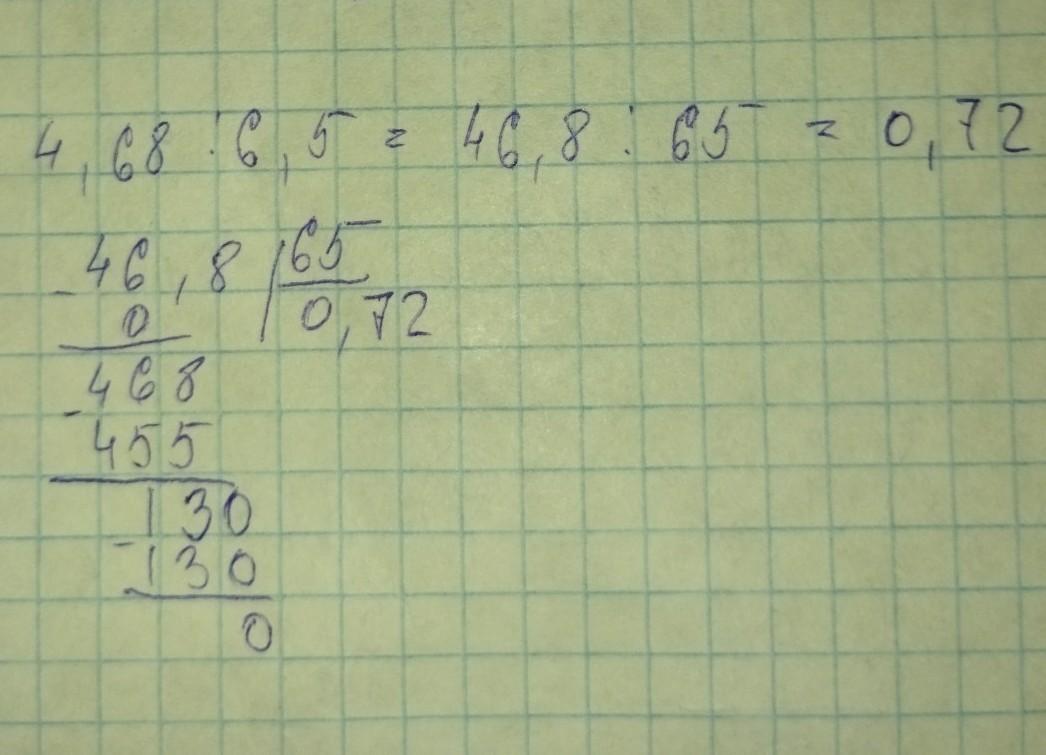 4,68 : 6,5 = 46,8 : 65 = 0,72
- 46,8 | 65
0 0,72
- 468
455
- 130
130
0